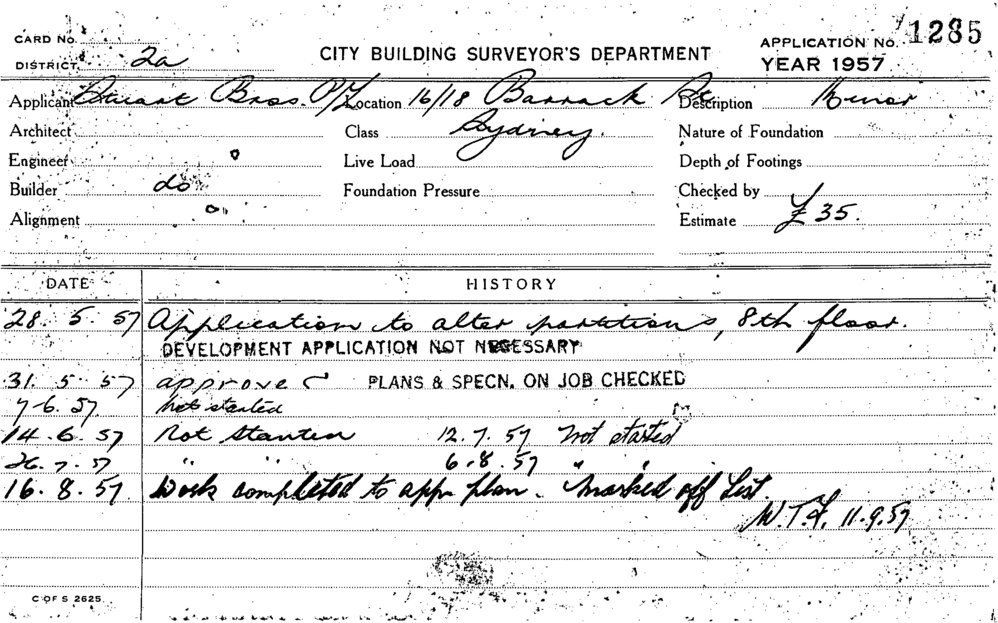 CARD No.
DISTRICT 2a
CITY BUILDING SURVEYOR'S DEPARTMENT
APPLICATION No. 1285
YEAR 1957
Applicant Stuart Bros. P/L Location 16/18 Barrack St. Description Minor
Architect Class Sydney. Nature of Foundation
Engineer Live Load Depth of Footings
Builder do Foundation Pressure Checked by
Alignment Estimate £35.
DATE HISTORY
28. 5. 57 Application to alter partitions, 8th floor.
DEVELOPMENT APPLICATION NOT NECESSARY
31. 5. 57 approved PLANS & SPECN. ON JOB CHECKED
7-6. 57. Not started
14. 6. 57 Not Started 12. 7. 57 Not started
26. 7. 57 " " 6. 8. 57 " "
16. 8. 57. Work completed to appr plan. Marked off List.
11.9.57
C OF S 2625